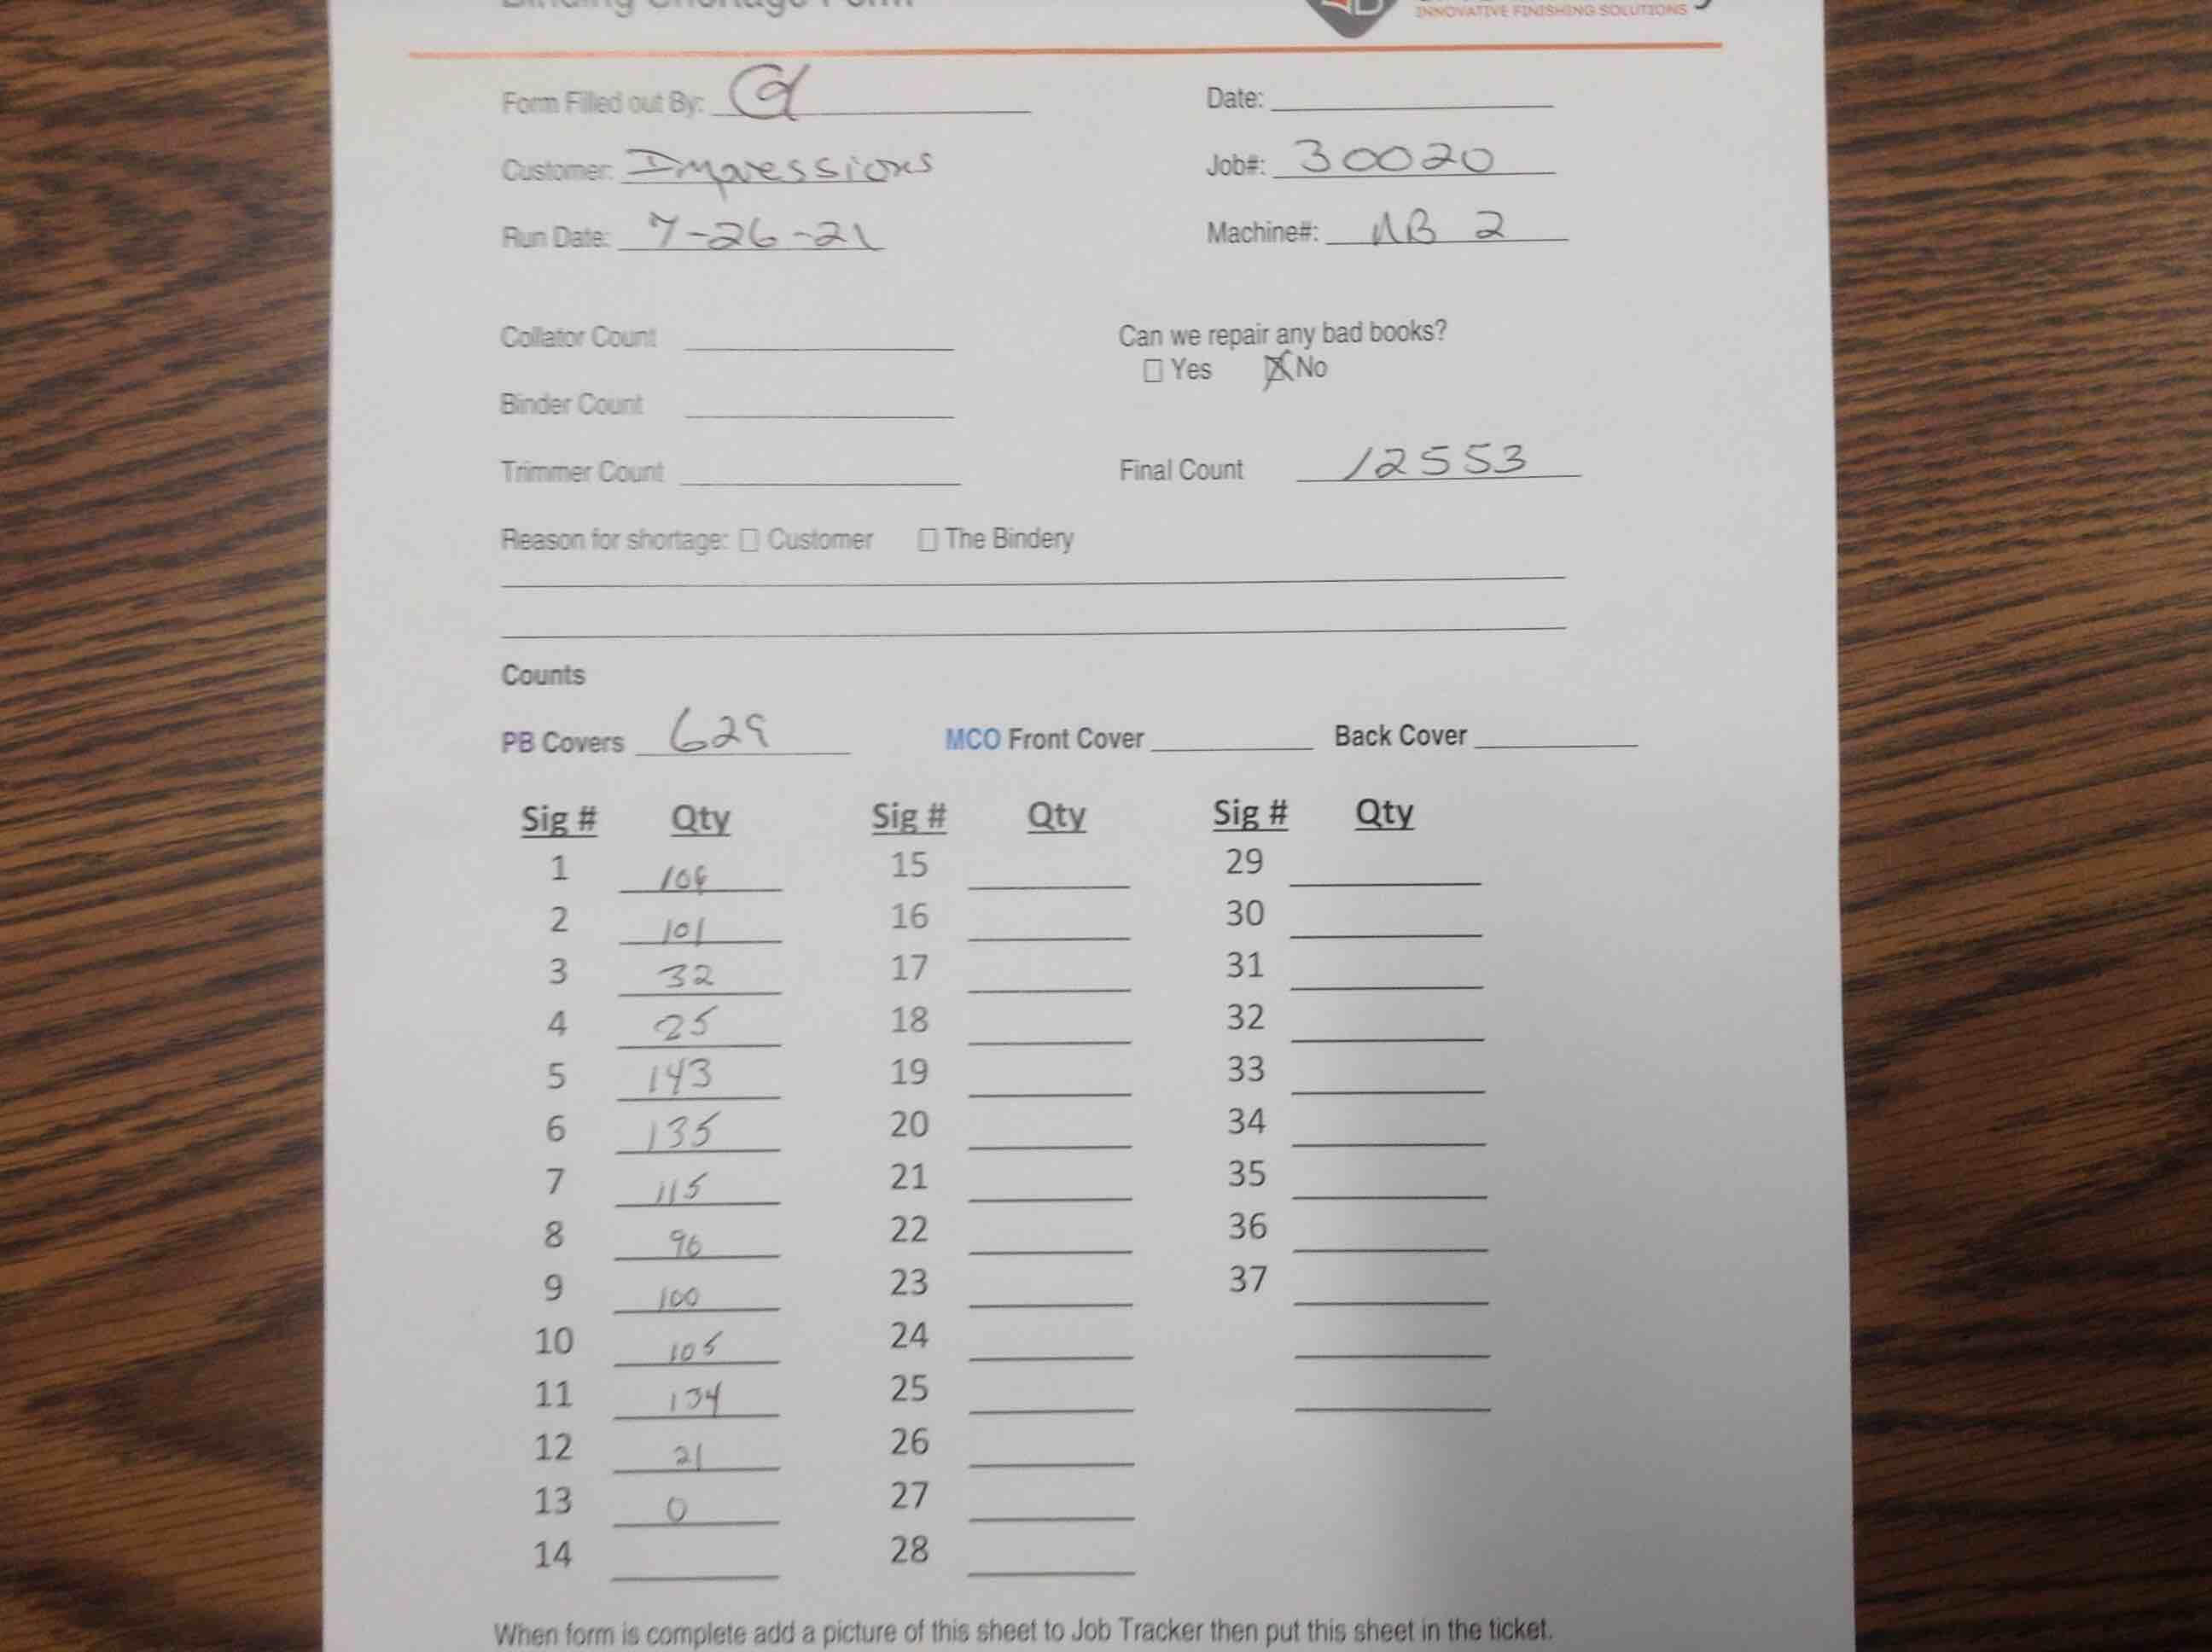 Binding Shortage Form
INNOVATIVE FINISHING SOLUTIONS
Form Filled out By:
Date:
Customer: Impressions
Job#: 30020
Run Date: 7-26-21
Machine#: AB 2
Collator Count
Can we repair any bad books?
Yes No
Binder Count
Trimmer Count
Final Count 12553
Reason for shortage: Customer The Bindery
Counts
PB Covers 629
MCO Front Cover
Back Cover
Sig # Qty Sig # Qty Sig # Qty
1 15 29
2 101 16 30
3 32 17 31
4 25 18 32
5 143 19 33
6 135 20 34
7 115 21 35
8 96 22 36
9 100 23 37
10 105 24
11 134 25
12 21 26
13 0 27
14 28
When form is complete add a picture of this sheet to Job Tracker then put this sheet in the ticket.